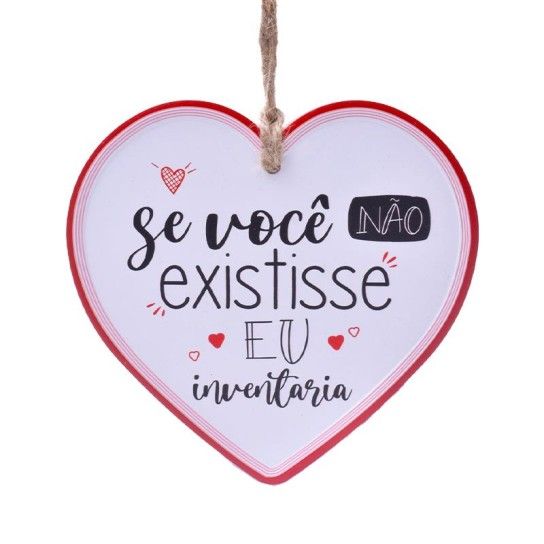 se você NÃO
existisse
EU
inventaria